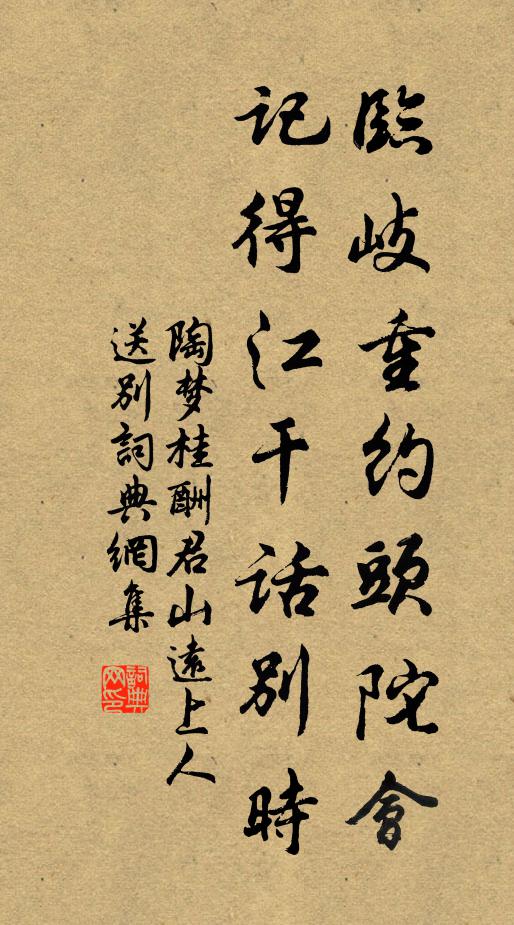 臨岐重約頭陀會
記得江干話別時
陶梦桂酬君山遠上人
送别詞典網集
詞典网印